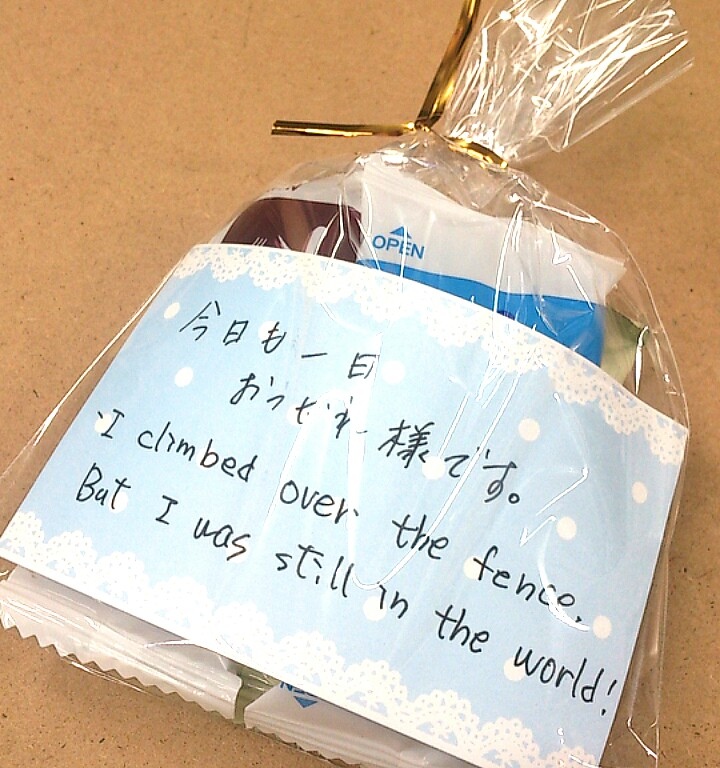 OPEN
今日も一日
おつかれ様です。
I climbed over the fence.
But I was still in the world!